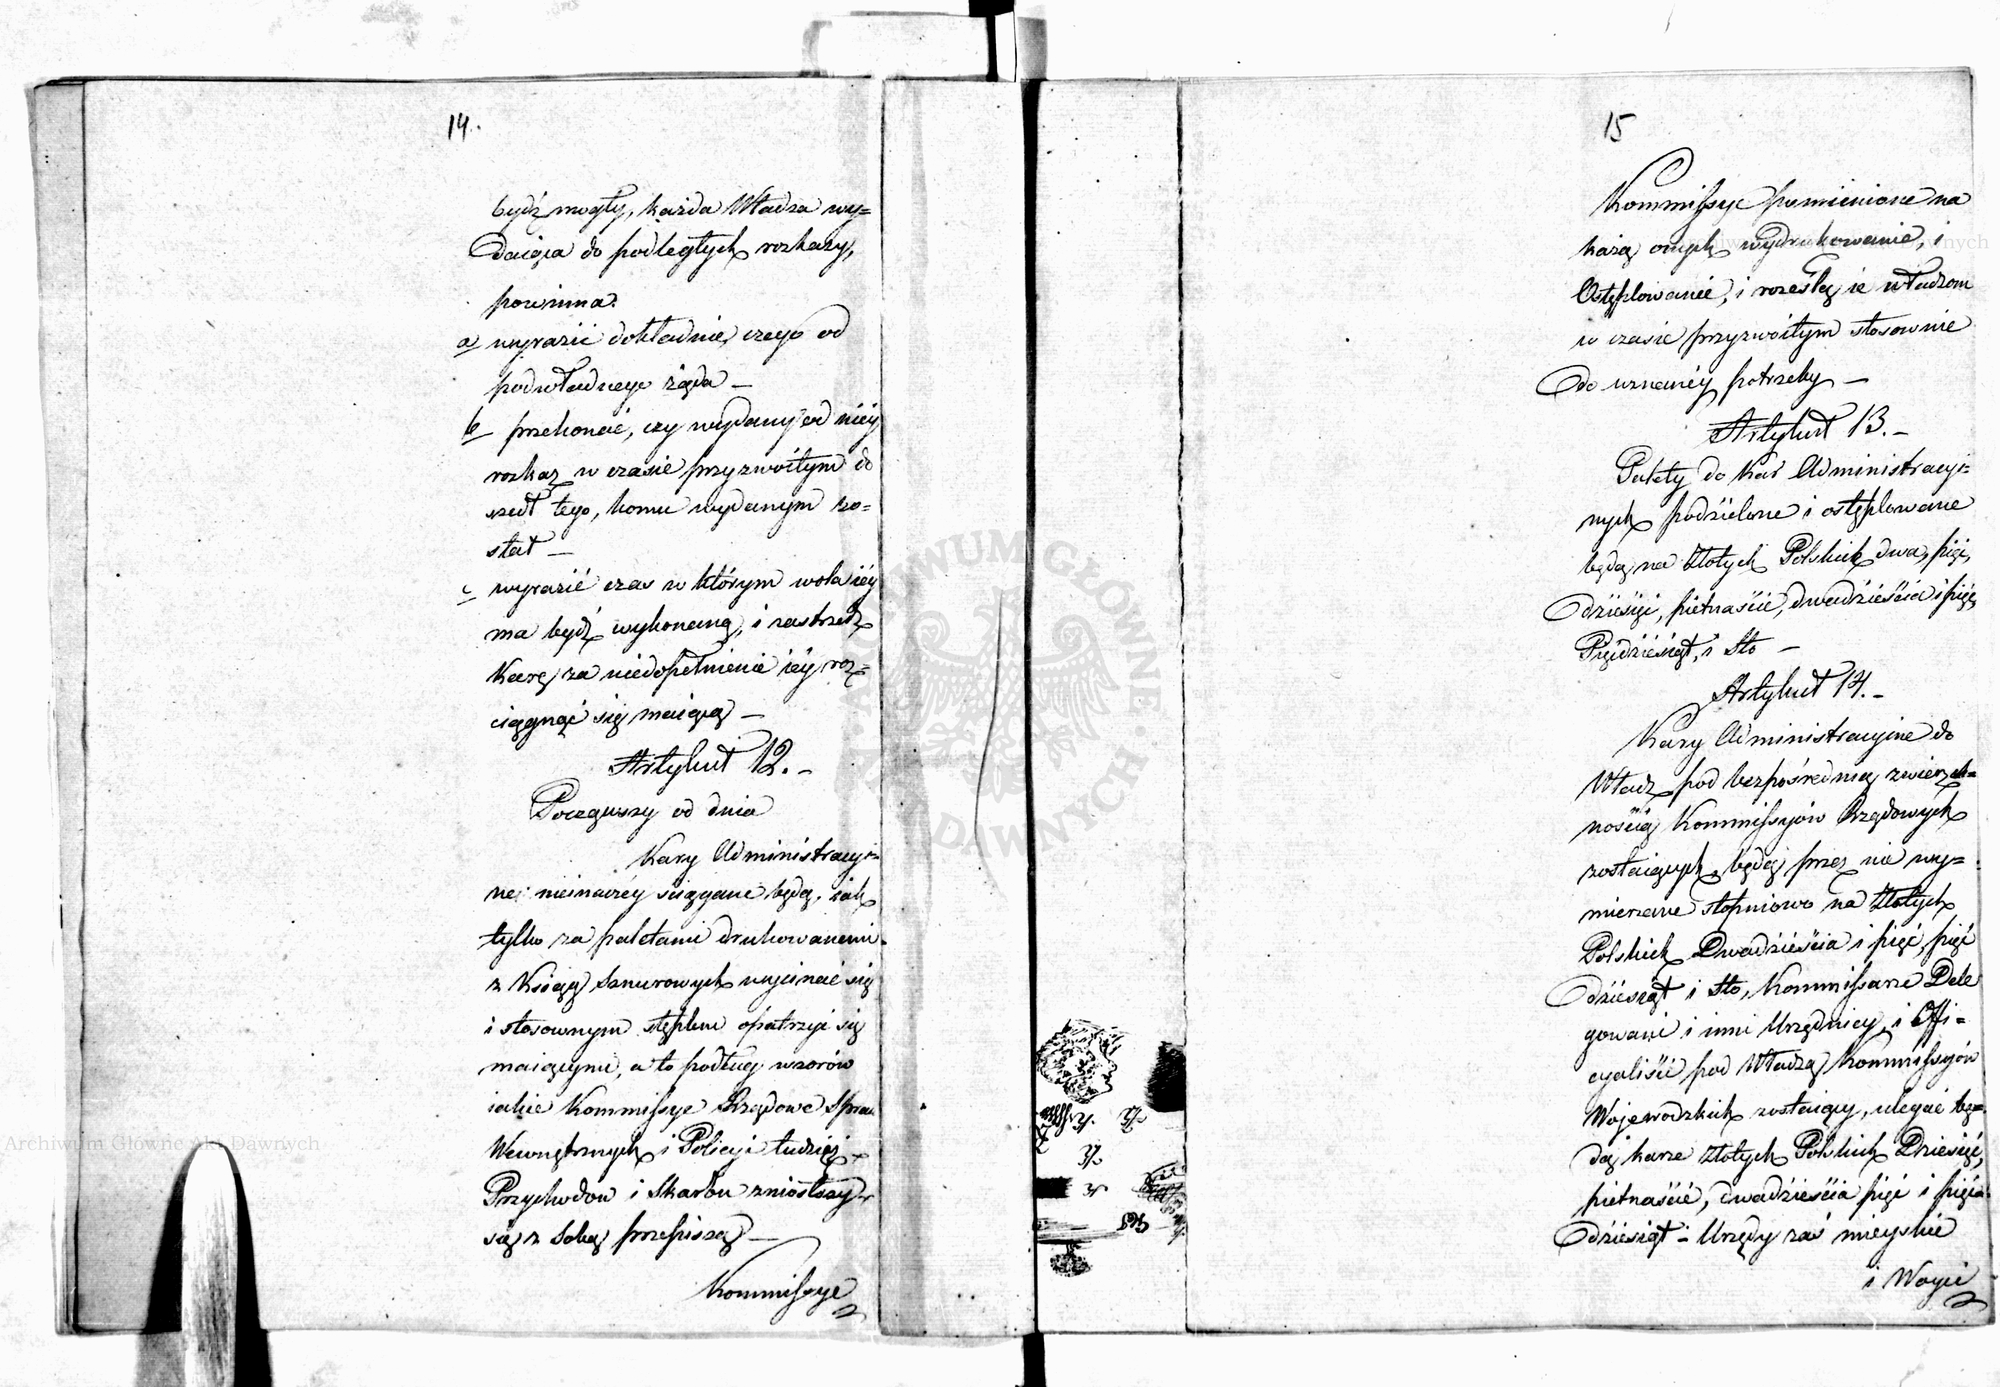 14.
bydź mogły, każda Władza wy=
daiąca do podległych rozkazy,
powinna.
a) wyrazić dokładnie, czego od
podwładnego żąda —
b przekonać, czy wydany od niéy
rozkaz w czasie przyzwoitym do
szedł tego, komu wydanym zo=
stał —
c wyrazić czas w którym wola iéy
ma bydź wykonaną, i zastrzedz
karę za niedopełnienie iéy roz=
ciągnąć się maiącą —
Artykuł 12. —
Począwszy od dnia
Kary Administracyi=
ne nieinaczéy ściągane będą, iak
tylko za paletami drukowanemi
z Ksiąg Sznurowych wycinać się
i stosownym stęplem opatrzyć się
maiącymi, a to podług wzorów
iakie Kommissye Rządowe Spraw
Wewnętrznych i Policyi tudzież
Przychodow i Skarbu zniosłszy
się z sobą przepiszą —
Kommissye
15
Kommissye pomienione na
każą onych wydrukowanie, i
Ostęplowanie, i rozeslą ie władzom
w czasie przyzwoitym stosownie
do uznanéy potrzeby —
Artykuł 13. —
Palety do Kar Administracyi=
nych podzielone i ostęplowane
będą na Złotych Polskich dwa, pięć,
dziesięć, piętnaście, dwadzieścia i pięć
Pięćdziesiąt, i Sto —
Artykuł 14. —
Kary Administracyine do
Władz pod bezpośrednią zwierzch=
nością Kommissyów Rządowych
zostaiących, będą przez nie wy=
mierzane stopniowo na Złotych
Polskich Dwadzieścia i pięć, pięć
dziesiąt i Sto, Kommissarze Dele
gowani i inni Urzędnicy i Offi=
cyaliści pod Władzą Kommissyów
Wojewodzkich zostaiący, ulegać bę=
dą karze Złotych Polskich Dziesięć,
piętnaście, dwadzieścia pięć i pięć
dziesiąt — Urzędy zaś mieyskie
i Woyci
ARCHIWUM GŁÓWNE AKT DAWNYCH
Archiwum Główne Akt Dawnych